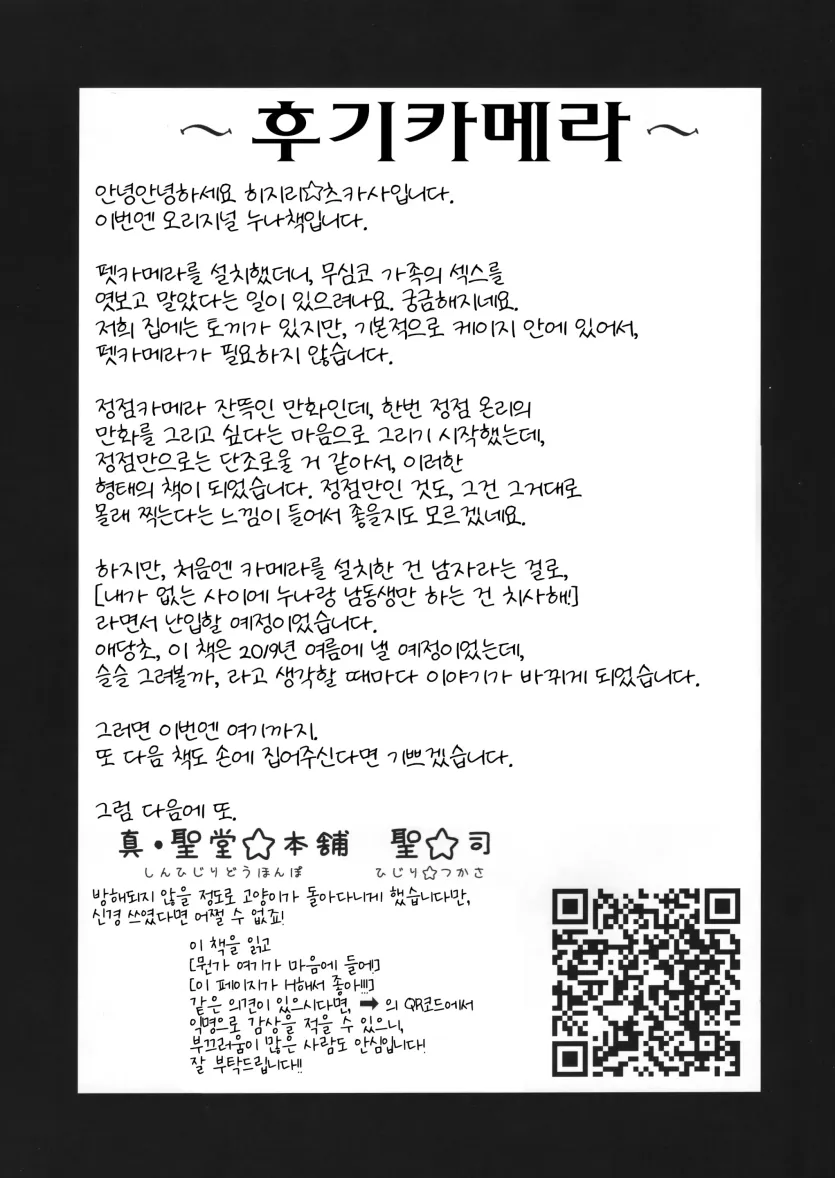 ~ 후기카메라 ~
안녕안녕하세요 히지리☆츠카사입니다.
이번엔 오리지널 누나책입니다.
펫카메라를 설치했더니, 무심코 가족의 섹스를
엿보고 말았다는 일이 있으려나요. 궁금해지네요.
저희 집에는 토끼가 있지만, 기본적으로 케이지 안에 있어서,
펫카메라가 필요하지 않습니다.
정점카메라 잔뜩인 만화인데, 한번 정점 온리의
만화를 그리고 싶다는 마음으로 그리기 시작했는데,
정점만으로는 단조로울 거 같아서, 이러한
형태의 책이 되었습니다. 정점만인 것도, 그건 그거대로
몰래 찍는다는 느낌이 들어서 좋을지도 모르겠네요.
하지만, 처음엔 카메라를 설치한 건 남자라는 걸로,
[내가 없는 사이에 누나랑 남동생만 하는 건 치사해!]
라면서 난입할 예정이었습니다.
애당초, 이 책은 2019년 여름에 낼 예정이었는데,
슬슬 그려볼까, 라고 생각할 때마다 이야기가 바뀌게 되었습니다.
그러면 이번엔 여기까지.
또 다음 책도 손에 집어주신다면 기쁘겠습니다.
그럼 다음에 또.
真・聖堂☆本舗 聖☆司
しんひじりどうほんぽ ひじり☆つかさ
방해되지 않을 정도로 고양이가 돌아다니게 했습니다만,
신경 쓰였다면 어쩔 수 없죠!
이 책을 읽고
[뭔가 여기가 마음에 들에]
[이 페이지가 H해서 좋아!!!]
같은 의견이 있으시다면, ➡ 의 QR코드에서
익명으로 감상을 적을 수 있으니,
부끄러움이 많은 사람도 안심입니다!
잘 부탁드립니다!!